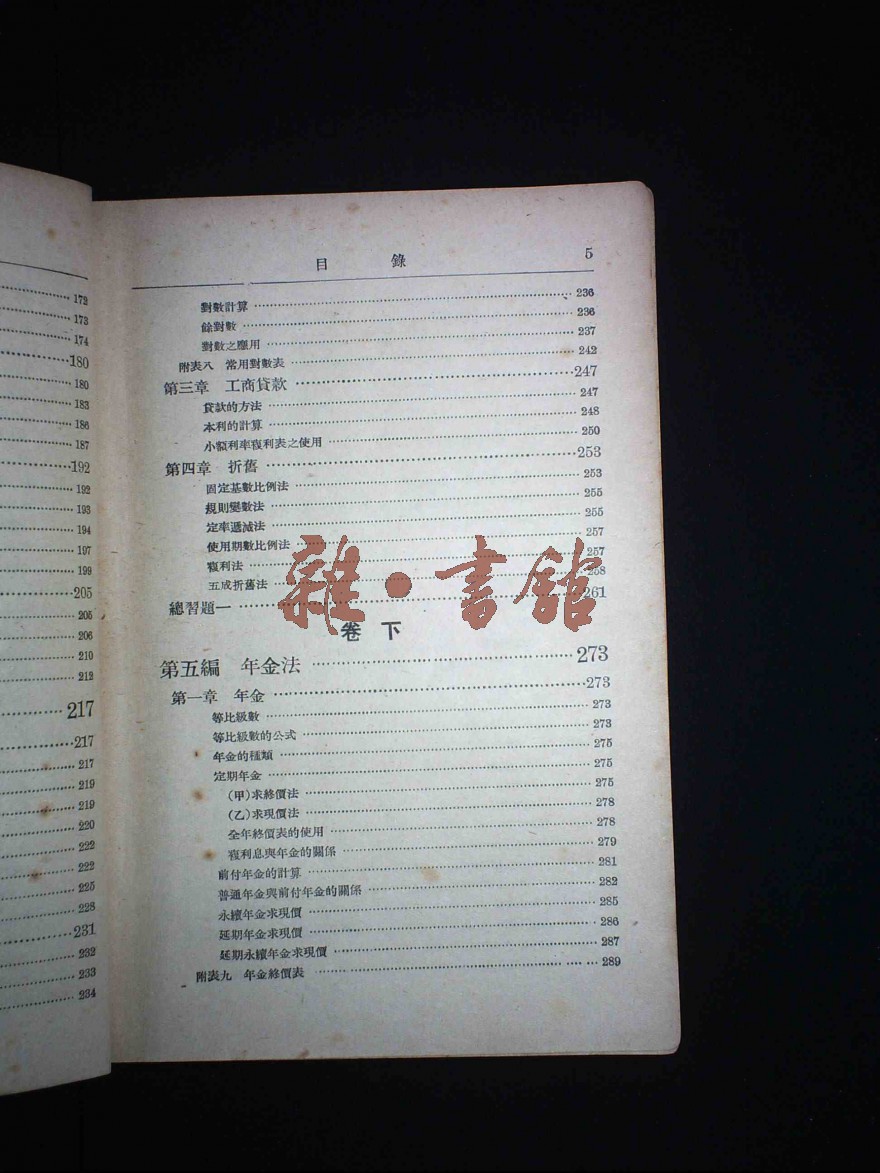 172
173
174
180
180
183
186
187
192
192
193
194
197
199
205
205
206
210
212
217
217
217
219
219
220
222
222
225
228
231
232
233
234
目 錄 5
對數計算 236
餘對數 236
對數之應用 237
附表八 常用對數表 242
第三章 工商貸款 247
貸款的方法 247
本利的計算 248
小額利率複利表之使用 250
第四章 折舊 253
固定基數比例法 253
規則變數法 255
定率遞減法 255
使用期數比例法 257
複利法 257
五成折舊法 258
總習題一 261
雜·書館
卷 下
第五編 年金法 273
第一章 年金 273
等比級數 273
等比級數的公式 273
年金的種類 275
定期年金 275
(甲)求終價法 275
(乙)求現價法 278
全年終價表的使用 278
複利息與年金的關係 279
前付年金的計算 281
普通年金與前付年金的關係 282
永續年金求現價 285
延期年金求現價 286
延期永續年金求現價 287
附表九 年金終價表 289